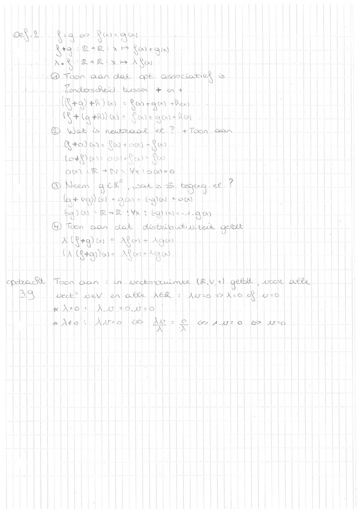 def. 2 f = g ⇔ f(x) = g(x)
f+g : ℝ → ℝ : x ↦ f(x) + g(x)
λ.f : ℝ → ℝ : x ↦ λ f(x)
① Toon aan dat opt. associatief is
Onderscheid tussen + en +
((f+g)+h)(x) = f(x)+g(x)+h(x)
(f+(g+h))(x) = f(x)+g(x)+h(x)
② Wat is neutraal el ? + Toon aan
(f+o)(x) = f(x)+o(x) = f(x)
(o+f)(x) = o(x)+f(x) = f(x)
o(x) : ℝ → ℝ : ∀x : o(x)=0
③ Neem g ∈ , wat is tegeng el ?
(g+(-g))(x) = g(x) + (-g)(x) = o(x)
(-g)(x) : ℝ → ℝ : ∀x : (-g)(x) = -1.g(x)
④ Toon aan dat distributiviteit geldt
λ(f+g)(x) = λf(x) + λg(x)
(λ(f+g))(x) = λf(x) + λg(x)
opdracht Toon aan : in vectorruimte (ℝ,V,+) geldt, voor alle
3.9 vect v∈V en alle λ∈ℝ : λv=0 ⇔ λ=0 of v=0
* λ=0 : λ.v = 0.v=0
* λ≠0 : λv=0 ⇔ λv/λ = 0/λ ⇔ 1.v=0 ⇔ v=0